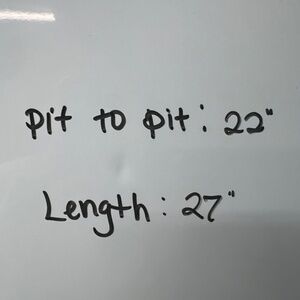 pit to pit: 22"
Length: 27"